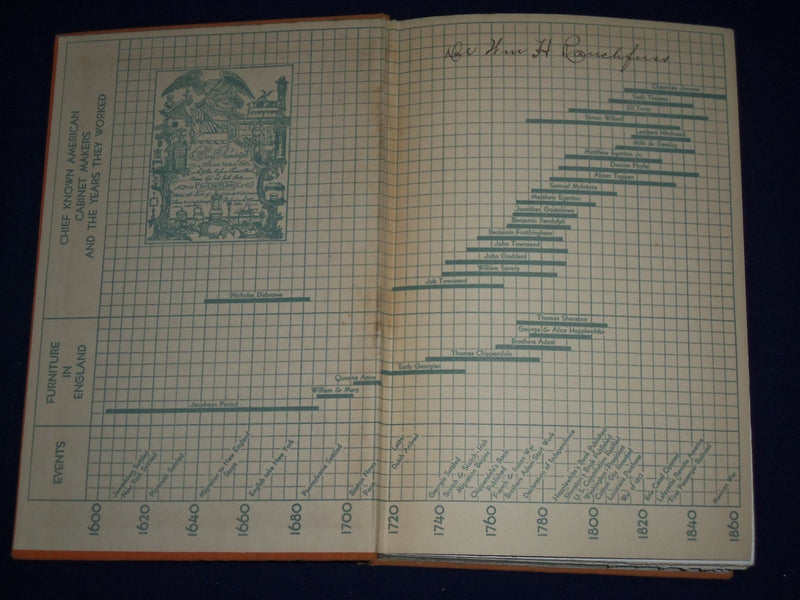 Wm H
CHIEF KNOWN AMERICAN
CABINET MAKERS
AND THE YEARS THEY WORKED
Benj. Randolph
PHILADELPHIA
Seth Thomas
Eli Terry
Simon Willard
Lambert Hitchcock
Mills & Deming
Matthew Egerton Jr.
Duncan Phyfe
Abner Toppan
Samuel McIntire
Matthew Egerton
Jonathan Gostelowe
Benjamin Randolph
Benjamin Frothingham
John Townsend
John Goddard
William Savery
Job Townsend
Nicholas Disbrowe
FURNITURE
IN
ENGLAND
Thomas Sheraton
George & Alice Hepplewhite
Brothers Adam
Thomas Chippendale
Early Georgian
Queen Anne
William & Mary
Jacobean Period
EVENTS
Jamestown Settled
New York Settled
Plymouth Settled
Migration to New England
Stops
English take New York
Pennsylvania Settled
Boston News
Letter
Dutch Arrived
Georgia Settled
Scotch & Scotch Irish
Migration Begins
Chippendale's Book
Published
French & Indian War
Brothers Adam Start Work
Declaration of Independence
Hepplewhite's Book Published
Sheraton's Book Published
Louisiana Purchase
War of 1812
Erie Canal Opened
First Passenger Railroad
Mexican War
1600
1620
1640
1660
1680
1700
1720
1740
1760
1780
1800
1820
1840
1860